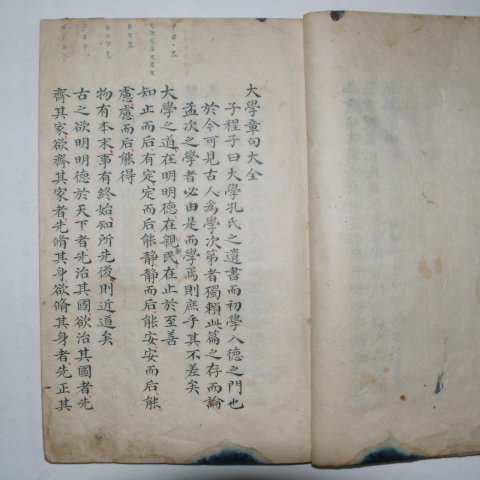 大學章句大全
子程子曰大學孔氏之遺書而初學入德之門也
於今可見古人爲學次第者獨賴此篇之存而論
孟次之學者必由是而學焉則庶乎其不差矣
大學之道在明明德在親民在止於至善
知止而后有定定而后能靜靜而后能安安而后能
慮慮而后能得
物有本末事有終始知所先後則近道矣
古之欲明明德於天下者先治其國欲治其國者先
齊其家欲齊其家者先脩其身欲脩其身者先正其